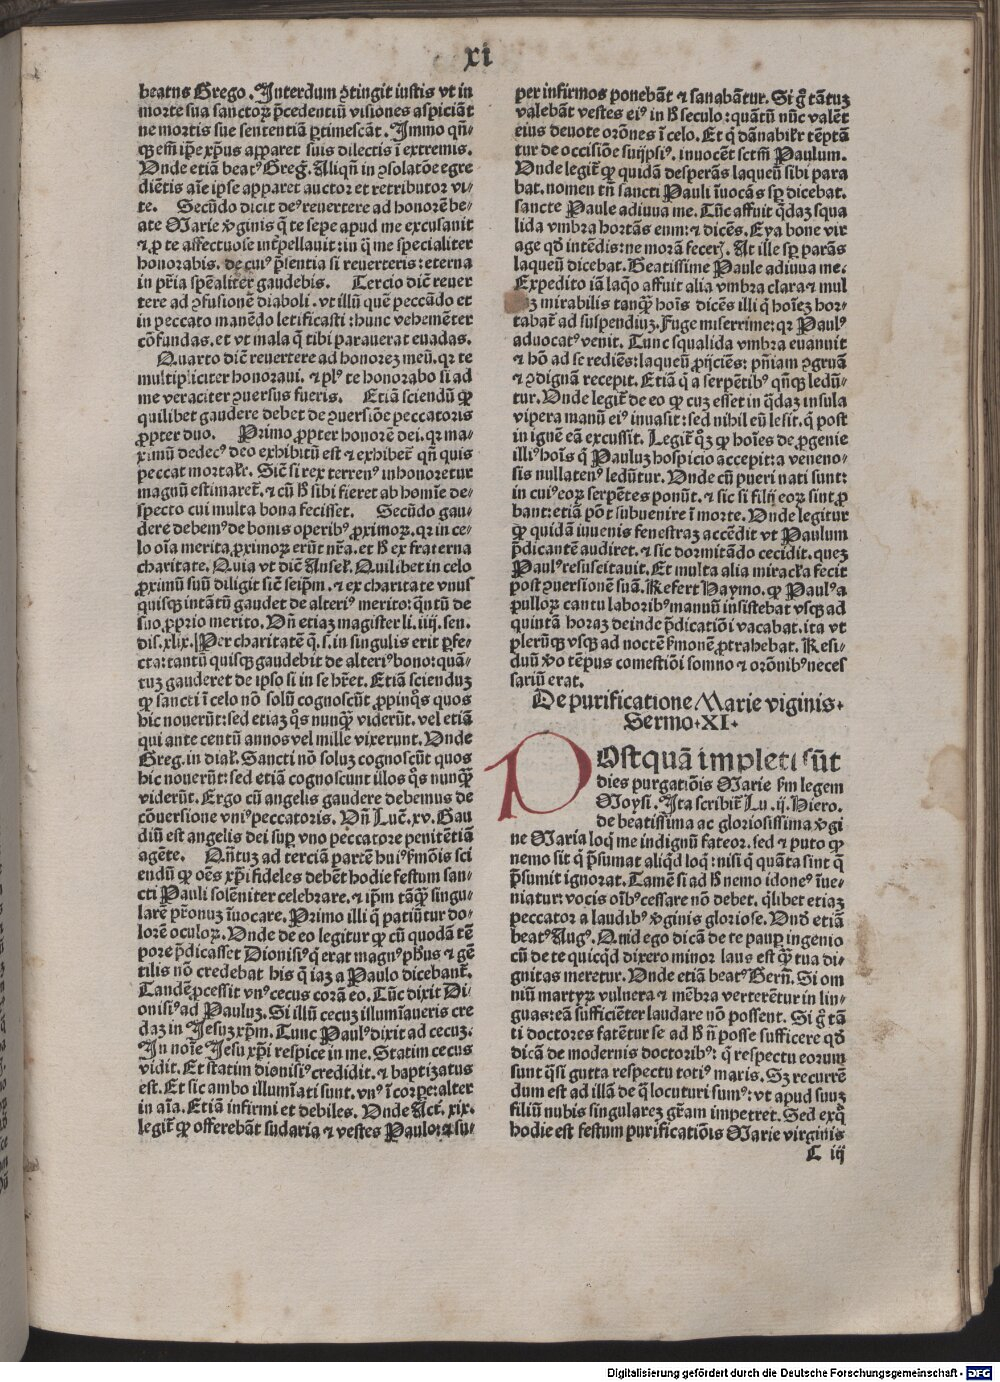 xi
beatus Grego. Interdum ꝯtingit iustis vt in
morte sua sanctoꝝ p̄cedentiū visiones aspiciāt
ne mortis sue sententiā ꝑtimescāt. Immo qn̄-
qꝫ em̄ ip̄e xp̄us apparet suis dilectis ī extremis.
Vnde etiā beatꝰ Greg. Aliqn̄ in ꝯsolatōe egre
diētis aīe ipse apparet auctor et retributor vi-
te. Secūdo dicit deꝰ reuertere ad honorē be-
ate Marie v̄ginis q̄ te sepe apud me excusauit
⁊ ꝓ te affectuose int̄pellauit: in q̄ me specialiter
honorabis. de cuiꝰ p̄sentia si reuerteris: eterna
in pr̄ia spēaliter gaudebis. Tercio dicit̄ reuer
tere ad ꝯfusionē diaboli. vt illū quē peccādo et
in peccato manēdo letificasti: hunc vehemēter
cōfundas. et vt mala q̄ tibi parauerat euadas.
Quarto dicit̄ reuertere ad honorez meū. qꝛ te
multipliciter honoraui. ⁊ plꝰ te honorabo si ad
me veraciter ꝯuersus fueris. Etiā sciendū ꝙ
quilibet gaudere debet de ꝯuersiōe peccatoris
ꝓpter duo. Primo ꝓpter honorē dei. qꝛ ma-
ximū dedecꝰ deo exhibitū est ⁊ exhibet̄ qn̄ quis
peccat mortalr̄. Sicut̄ si rex terrenꝰ inhonoretur
magnū estimaret̄. ⁊ cū h̄ sibi fieret ab homīe de-
specto cui multa bona fecisset. Secūdo gau-
dere debemꝰ de bonis operibꝰ ꝓximoꝝ. qꝛ in ce-
lo oīa merita ꝓximoꝝ erūt nr̄a. et h̄ ex fraterna
charitate. Quia vt dicit̄ Ansel. Quilibet in celo
ꝓximū suū diligit sicut̄ seip̄m. ⁊ ex charitate vnus
quisqꝫ intātū gaudet de alteriꝰ merito: qn̄tū de
suo ꝓprio merito. Vn̄ etiaꝫ magister li. iiij. sen.
dis. xlix. Per charitatē q̄. s. in singulis erit ꝑfe-
cta: tantū quisqꝫ gaudebit de alteriꝰ bono: quā-
tuꝫ gauderet de ipso si in se hr̄et. Etiā scienduꝫ
ꝙ sancti ī celo nō solū cognoscūt ꝓpinqꝰs quos
hic nouerūt: sed etiaꝫ qꝰs nunqꝫ viderūt. vel etiā
qui ante centū annos vel mille vixerunt. Vnde
Greg. in dial. Sancti nō soluꝫ cognoscūt quos
hic nouerūt: sed etiā cognoscunt illos qꝰs nunqꝫ
viderūt. Ergo cū angelis gaudere debemus de
cōuersione vniꝰ peccatoris. Vn̄ Luc̄. xv. Gau
diū est angelis dei suꝑ vno peccatore penitētiā
agēte. Qn̄tuꝫ ad terciā partē huiꝰ ẜmōis sci
endū ꝙ oēs xp̄i fideles debēt hodie festum san-
cti Pauli solēniter celebrare. ⁊ ip̄m tāqꝫ singu-
larē pr̄onuꝫ īuocare. Primo illi q̄ patiūtur do-
lorē oculoꝝ. Vnde de eo legitur ꝙ cū quodā tē
pore p̄dicasset Dionisiꝰ q̄ erat magnꝰ ph̄us ⁊ gē
tilis nō credebat his q̄ iaꝫ a Paulo dicebant̄.
Tandē ꝓcessit vnꝰ cecus corā eo. Tūc dixit Di-
onisiꝰ ad Pauluꝫ. Si illū cecuꝫ illumīaueris cre
daꝫ in Jesuꝫ xp̄m. Tunc Paulꝰ dixit ad cecuꝫ.
In noīe Jesu xp̄i respice in me. Statim cecus
vidit. Et statim dionisiꝰ credidit. ⁊ baptizatus
est. Et sic ambo illumīati sunt. vnꝰ ī corꝑe: alter
in aīa. Etiā infirmi et debiles. Vnde Act̄. xix.
legit̄ ꝙ offerebāt sudaria ⁊ vestes Pauloꝝ ⁊ su-
per infirmos ponebāt ⁊ sanabātur. Si gͦ tātuꝫ
valebāt vestes eiꝰ in h̄ seculo: quātū nūc valēt
eius deuote orōnes ī celo. Et q̄ dānabilr̄ tēptā
tur de occisiōe suijpsiꝰ. inuocēt sctm̄ Paulum.
Vnde legit̄ ꝙ quidā desperās laqueū sibi para
bat. nomen tn̄ sancti Pauli īuocās sꝑ dicebat.
sancte Paule adiuua me. Tūc affuit q̄daꝫ squa
lida vmbra hortās eum: ⁊ dicēs. Eya bone vir
age qd̄ intēdis: ne morā feceꝝ. At ille sꝑ parās
laqueū dicebat. Beatissime Paule adiuua me.
Expedito iā laq̄o affuit alia vmbra clara ⁊ mul
mirabilis tanqꝫ hoīs dicēs illi q̄ hoīeꝫ hor-
tabat̄ ad suspendiuꝫ. Fuge miserrime: qꝛ Paulꝰ
aduocatꝰ venit. Tunc squalida vmbra euanuit
⁊ hō ad se rediēs: laqueū ꝓijciēs: pn̄iam ꝯgruā
⁊ ꝯdignā recepit. Etiā q̄ a serpētibꝰ qn̄qꝫ ledū-
tur. Vnde legit̄ de eo ꝙ cuꝫ esset in q̄daꝫ insula
vipera manū eiꝰ inuasit: sed nihil eū lesit. q̄ post
in ignē eā excussit. Legit̄ qͦꝫ ꝙ hoīes de ꝓgenie
illiꝰ hoīs q̄ Pauluꝫ hospicio accepit: a veneno-
sis nullatenꝰ ledūtur. Vnde cū pueri nati sunt:
in cuiꝰ eoꝝ serpētes ponūt. ⁊ sic si filij eoꝝ sint ꝓ
bant: etiā pōt subuenire ī morte. Vnde legitur
ꝙ quidā iuuenis fenestraꝫ accēdit vt Paulum
p̄dicantē audiret. ⁊ sic dormitādo cecidit. queꝫ
Paulꝰ resuscitauit. Et multa alia miracl̄a fecit
post ꝯuersionē suā. Refert Haymo. ꝙ Paulꝰ a
pulloꝝ cantu laboribꝰ manuū insistebat vsqꝫ ad
quintā horaꝫ deinde p̄dicatiōi vacabat. ita vt
plerūqꝫ vsqꝫ ad noctē ẜmonē ꝓtrahebat. Resi-
duū v̄o tēpus comestiōi somno ⁊ orōnibꝰ neces
sariū erat.
De purificatione Marie viginis.
Sermo. XI.
POstquā impleti sūt
dies purgatiōis Marie ẜm legem
Moysi. Ita scribit̄ Lu. ij. Hiero.
de beatissima ac gloriosissima v̄gi
ne Maria loqͥ me indignū fateor. sed ⁊ puto ꝙ
nemo sit q̄ p̄sumat aliqd̄ loqͥ: nisi q̄ quāta sint q̄
p̄sumit ignorat. Tamē si ad h̄ nemo idoneꝰ īue-
niatur: vocis oībꝰ cessare nō debet. qͥlibet etiaꝫ
peccator a laudibꝰ v̄ginis gloriose. Vnd̄ etiā
beatꝰ Augꝰ. Quid ego dicā de te pauꝑ ingenio
cū de te quicqͥd dixero minor laus est qꝫ tua di-
gnitas meretur. Vnde etiā beatꝰ Bern̄. Si om
niū martyꝝ vulnera ⁊ mēbra verterētur in lin-
guas: eā sufficiēter laudare nō possent. Si gͦ tā
ti doctores fatētur se ad h̄ n̄ posse sufficere qd̄
dicā de modernis doctoribꝰ: q̄ respectu eorum
sunt qͣsi gutta respectu totiꝰ maris. Sꝫ recurrē
dum est ad illā de q̄ locuturi sumꝰ: vt apud suuꝫ
filiū nobis singulareꝫ gr̄am impetret. Sed exqͦ
hodie est festum purificatiōis Marie virginis
C iij
Digitalisierung gefördert durch die Deutsche Forschungsgemeinschaft - DFG